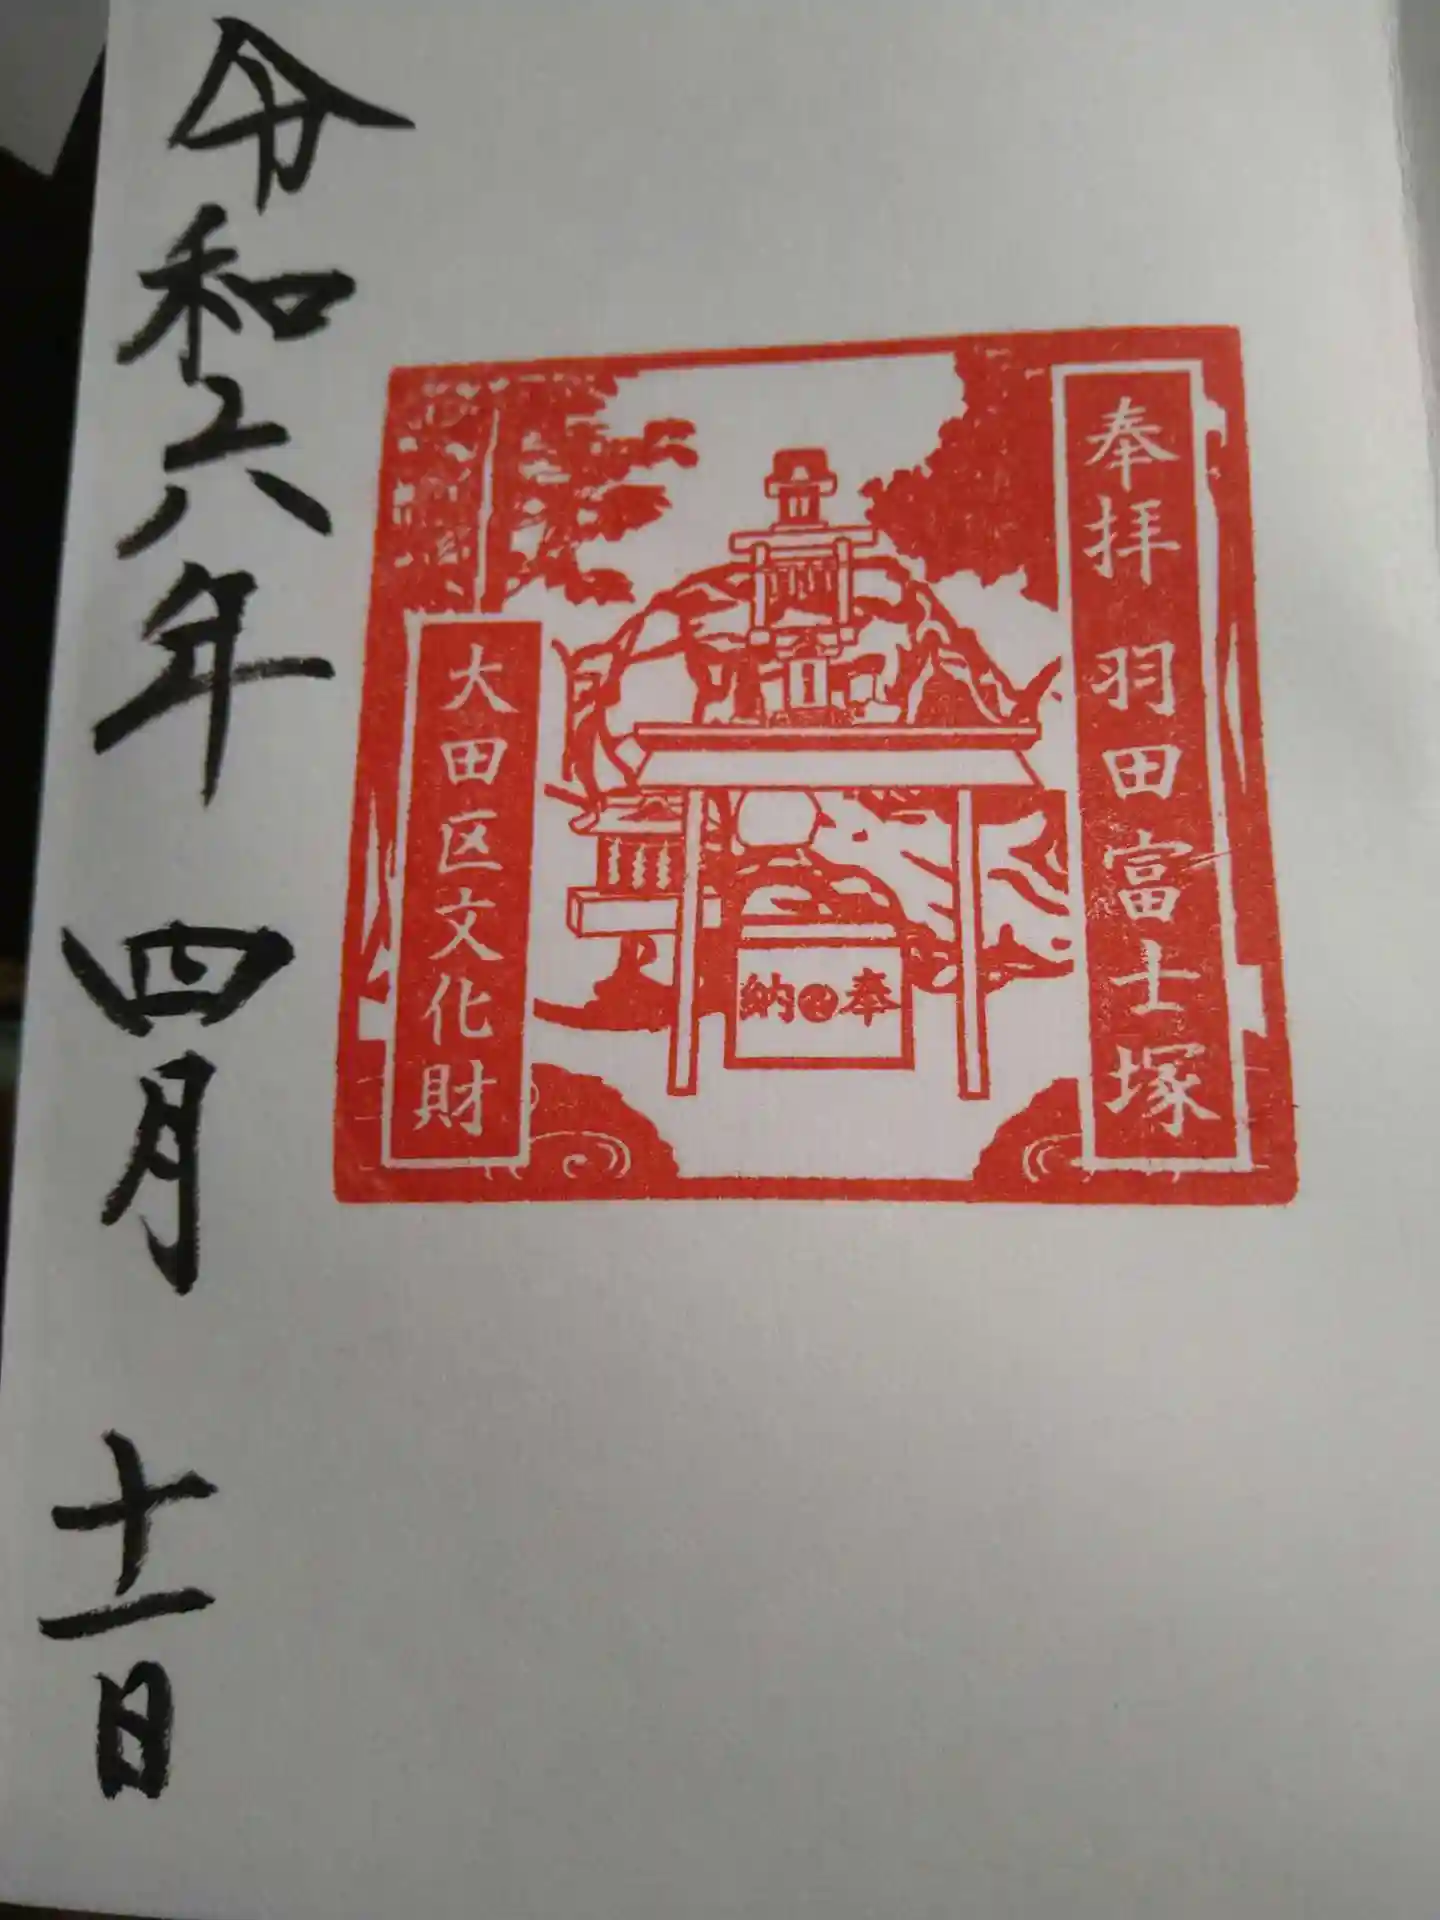 奉拝 羽田富士塚
奉納
大田区文化財
令和六年 四月 十一日